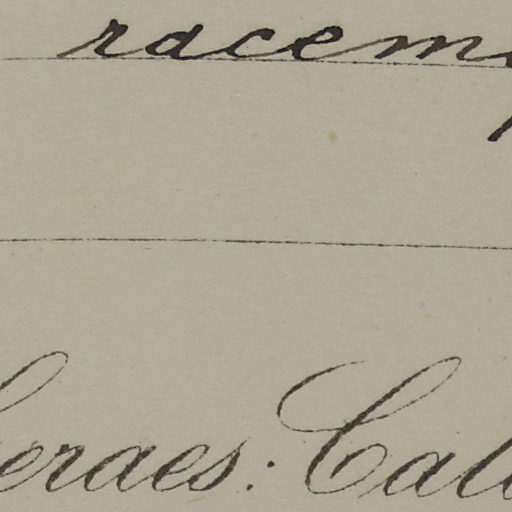 racem
Geraes: Cal